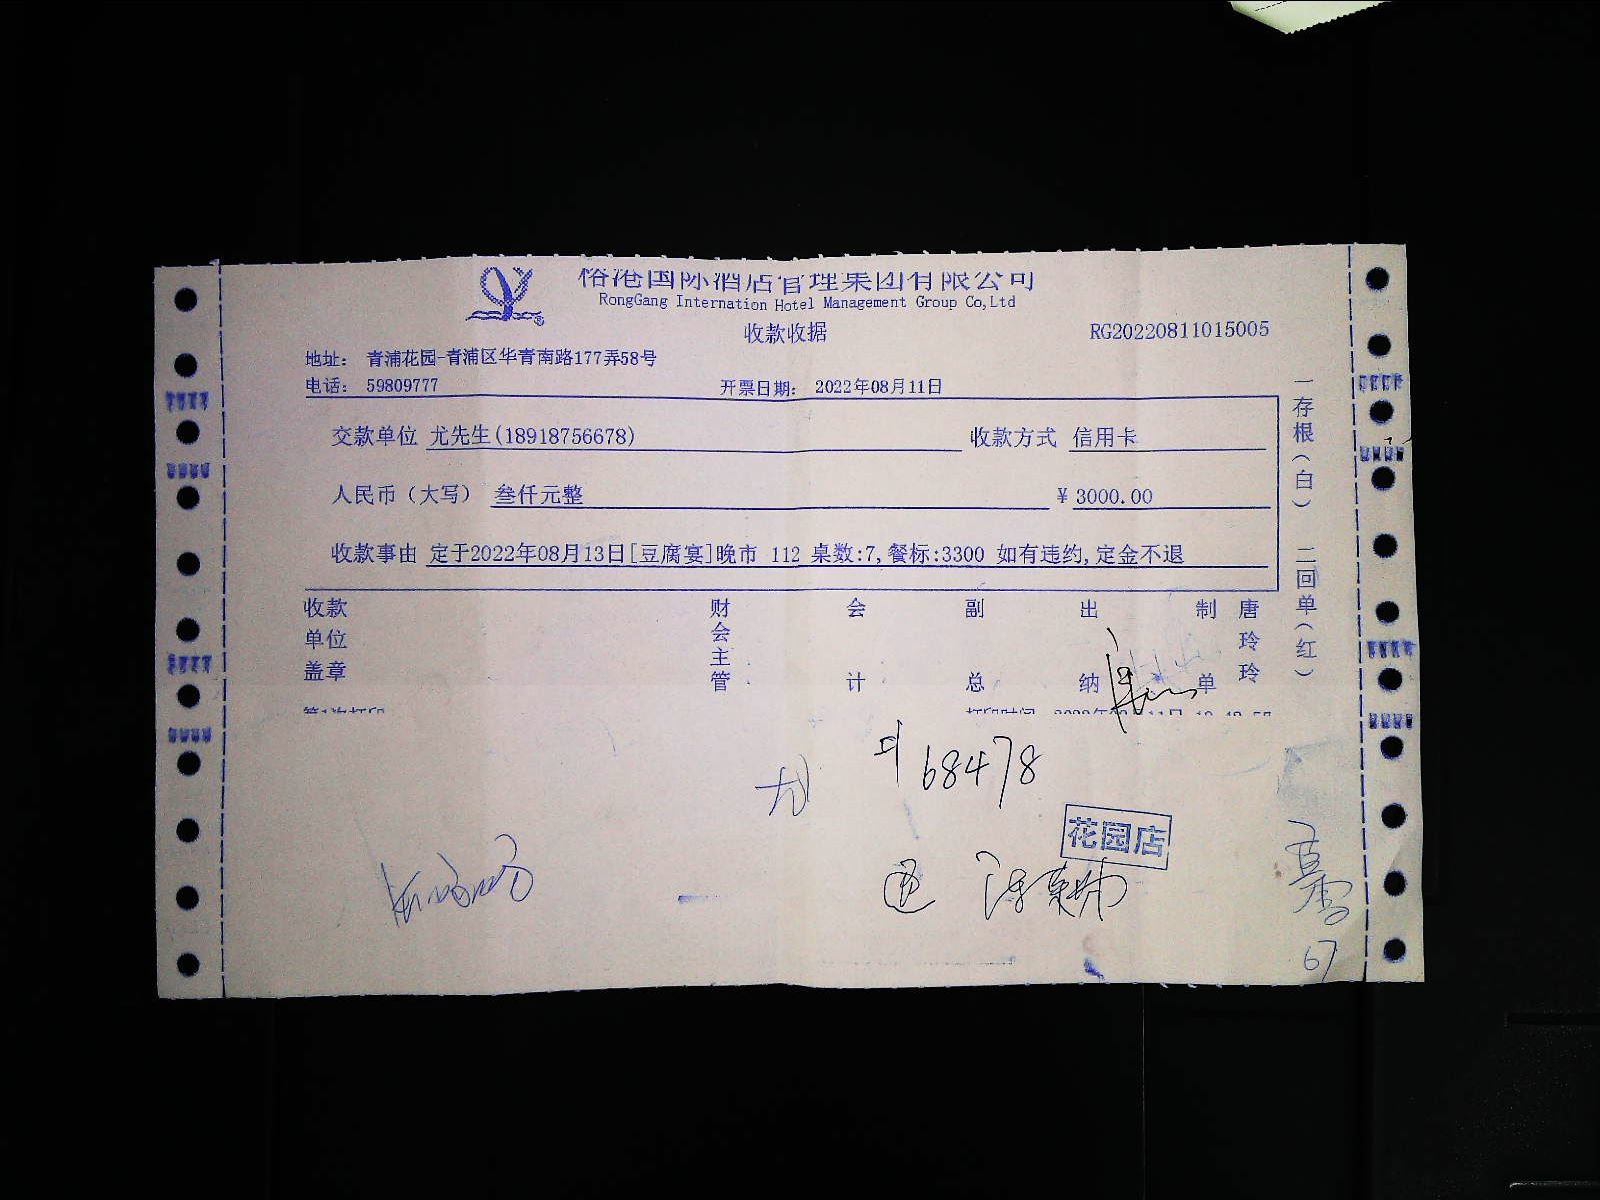 港国际酒店管理集团有限公司
RongGang Internation Hotel Management Group Co,Ltd
收款收据
RG20220811015005
地址： 青浦花园-青浦区华青南路177弄58号
电话： 59809777
开票日期： 2022年08月11日
交款单位 尤先生(18918756678)
收款方式 信用卡
人民币（大写） 叁仟元整
¥ 3000.00
收款事由 定于2022年08月13日[豆腐宴]晚市 112 桌数:7,餐标:3300 如有违约,定金不退
一存根（白） 二回单（红）
收款单位盖章
财会主管
会计
副总
出纳
制单
唐玲玲
68478
花园店
67